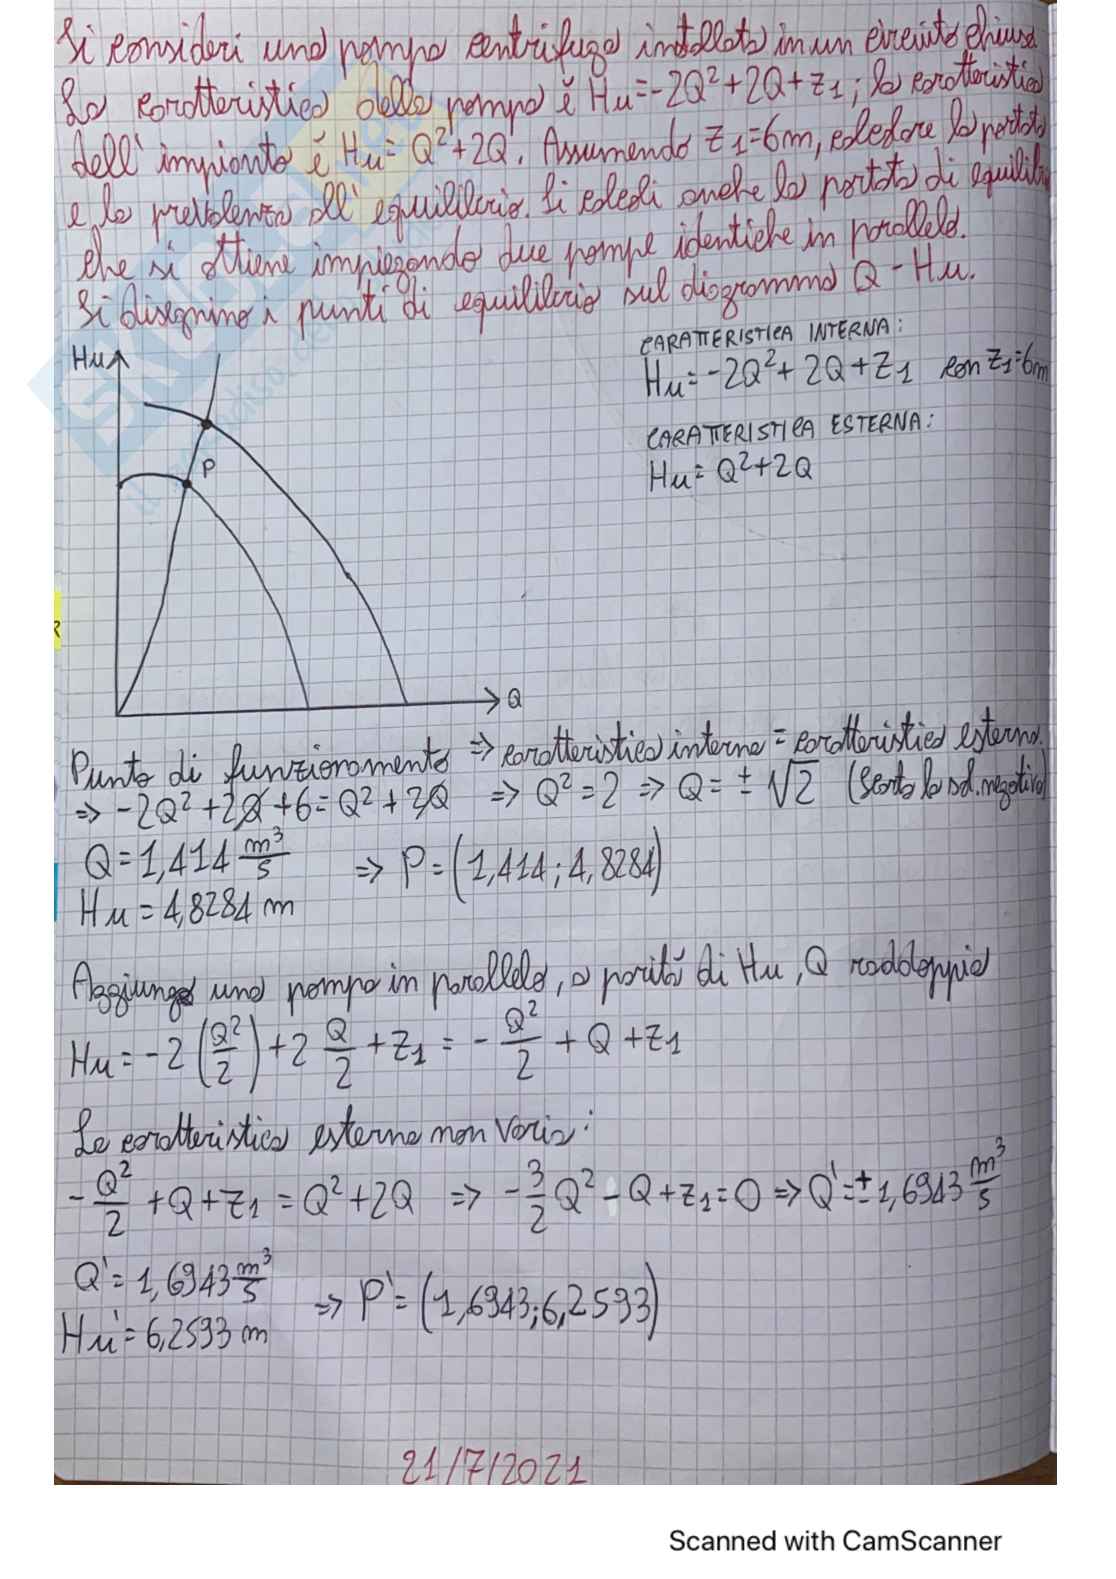 Si consideri una pompa centrifuga installata in un circuito chiuso
La caratteristica della pompa è Hu=-2Q²+2Q+z1; la caratteristica
dell'impianto è Hu= Q²+2Q. Assumendo z1=6m, calcolare la portata
e la prevalenza all'equilibrio. Si calcoli anche la portata di equilib
che si ottiene impiegando due pompe identiche in parallelo.
Si disegnino i punti di equilibrio sul diagramma Q-Hu.
CARATTERISTICA INTERNA:
Hu=-2Q²+2Q+z1 con z1=6m
CARATTERISTICA ESTERNA:
Hu=Q²+2Q
Hu
P
Q
Punto di funzionamento ⇒ caratteristica interna = caratteristica esterna.
⇒ -2Q²+2Q+6=Q²+2Q ⇒ Q²=2 ⇒ Q=±√2 (scarto la sol. negativa)
Q=1,414 m³/s ⇒ P=(1,414;4,8284)
Hu=4,8284 m
Aggiungo una pompa in parallelo, a parità di Hu, Q raddoppia
Hu=-2(Q²/2)+2 Q/2+z1 = -Q²/2+Q+z1
La caratteristica esterna non varia:
-Q²/2+Q+z1=Q²+2Q ⇒ -3/2Q²-Q+z1=0 ⇒ Q'=±1,6943 m³/s
Q'=1,6943 m³/s ⇒ P'=(1,6943;6,2593)
Hu'=6,2593 m
21/7/2021
Scanned with CamScanner